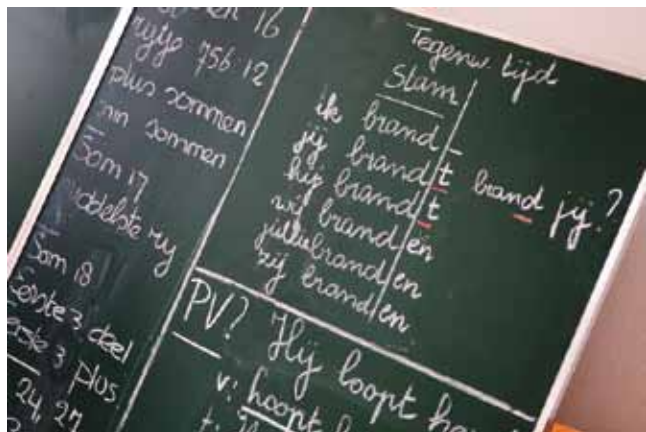 16
rijtje 756:12
plus sommen
min sommen
Som 17
middelste rij
Som 18
Eerste 3 deel
eerste 3 plus
24, 27
Tegenw. tijd
Stam
ik brand -
jij brandt brand jij?
hij brandt
wij branden
jullie branden
zij branden
PV? Hij loopt
v: hoopt
t: